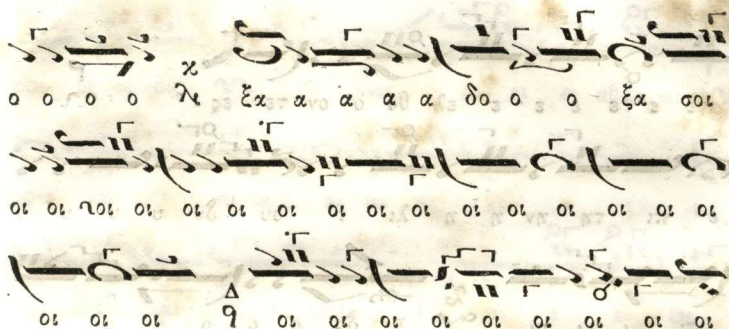 ο ο ο ο χ λ ξα α α α α δο ο ο ξα σοι
οι οι οι οι οι οι οι οι οι οι οι οι οι οι
οι οι οι Δ οι οι οι οι οι οι οι οι οι